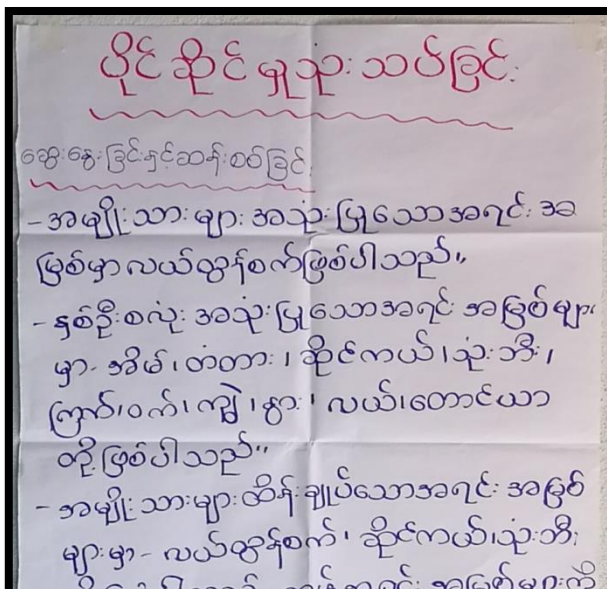 ပိုင်ဆိုင်မှုသုံးသပ်ခြင်း
ဆွေးနွေးခြင်းနှင့်ဆန်းစစ်ခြင်း
- အမျိုးသားများ အသုံးပြုသောအရင်းအ
မြစ်မှာ လယ်ထွန်စက်ဖြစ်ပါသည်။
- နှစ်ဦးစလုံး အသုံးပြုသောအရင်း အမြစ်များ
မှာ- အိမ်၊ တံတား၊ ဆိုင်ကယ်၊ သုံးဘီး၊
ကြက်၊ ဝက်၊ ကျွဲ၊ နွား၊ လယ်၊ တောင်ယာ
တို့ဖြစ်ပါသည်။
- အမျိုးသားများထိန်းချုပ်သောအရင်း အမြစ်
များမှာ - လယ်ထွန်စက်၊ ဆိုင်ကယ်၊ သုံးဘီး
အရင်း အမြစ်များကို